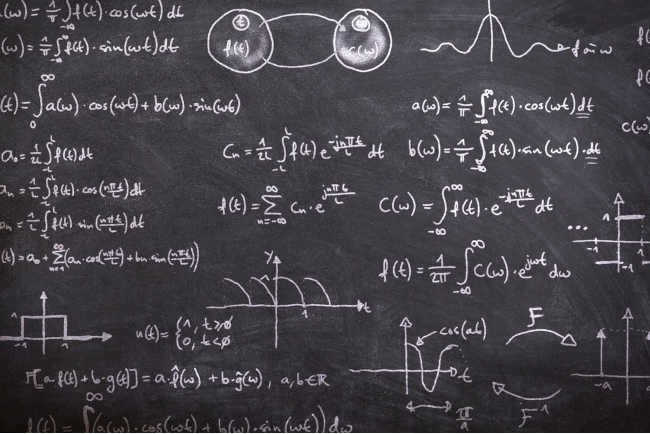 (ω) = 1/π ∫_{-∞} f(t)·cos(ωt) dt
(ω) = 1/π ∫_{-∞}^{∞} f(t)·sin(ωt) dt
t
f(t)
C(ω)
f(t)
(t) = ∫_0^∞ a(ω)·cos(ωt) + b(ω)·sin(ωt)
a(ω) = 1/π ∫_{-∞}^{∞} f(t)·cos(ωt) dt
a_0 = 1/2L ∫_{-L}^{L} f(t) dt
C_n = 1/2L ∫_{-L}^{L} f(t) e^{-jnπt/L} dt
b(ω) = 1/π ∫_{-∞}^{∞} f(t)·sin(ωt)·dt
C(ω)
a_n = 1/L ∫_{-L}^{L} f(t)·cos(nπt/L) dt
f(t) = ∑_{n=-∞}^{∞} C_n·e^{jnπt/L}
C(ω) = ∫_{-∞}^{∞} f(t)·e^{-jnπt/L} dt
b_n = 1/L ∫_{-L}^{L} f(t)·sin(nπt/L) dt
...
1
-1
-1
(t) = a_0 + ∑_{n=1}^{∞} (a_n·cos(nπt/L) + b_n·sin(nπt/L))
f(t) = 1/2π ∫_{-∞}^{∞} C(ω)·e^{jωt} dω
y
1
1
t
1
-1
1
u(t) = { 1, t≥0
0, t<0
cos(at)
F
t
F[a·f(t) + b·g(t)] = a·f̂(ω) + b·ĝ(ω), a,b∈ℝ
-a
π/a
F^{-1}
f(t) = ∫^∞ (a(ω)·cos(ωt) + b(ω)·sin(ωt)) dω